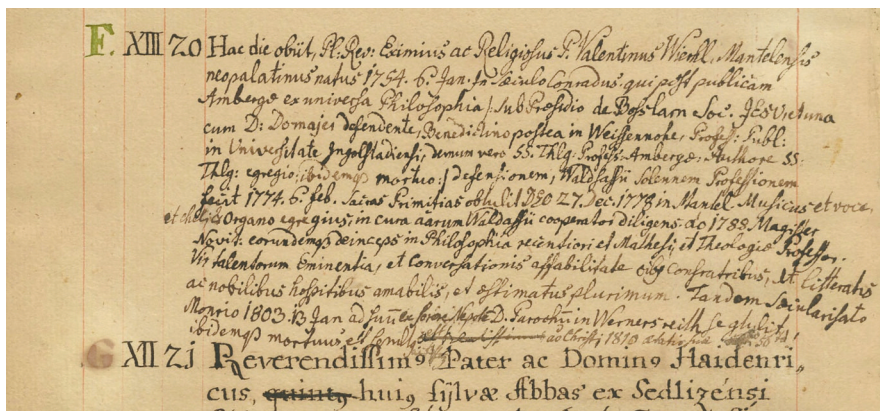 F. XIII 20 Hac die obiit, Pl: Rev: Eximius ac Religiosus P. Valentinus Wierl, Mantelensis
neopalatinus natus 1754. 6. Jan. In Sæculo Conradus. qui post publicam
Ambergæ ex universa Philosophia /: sub Præsidio de Bosslarn Soc. JESV et una
cum D: Domajer defendente, Benedictino postea in Weissennohe, Profess: Publ:
in Universitate Ingolstadiensi, demum vero SS. Thlg: Profess: Ambergæ. Authore SS:
Thlg: egregio, ibidemq3 mortuo :/ defensionem, Waldsassii Solennem Professionem
fecit 1774. 6. feb. Sacras Primitias obtulit DEO 27. Dec. 1778 in Mantel. Musicus et voce,
et Organo egregius, in cura aãrum Waldassii cooperator diligens. do 1788 Magister
Novit: eorundemq3 deinceps in Philosophia recentiori et Mathesi, et Theologiæ Professor.
Vir talentorum Eminentia, et Conversationis affabilitate oibg confratribus, et litteratis
ac nobilibus hospitibus amabilis, et æstimatus plurimum. Tandem Sæcularisato
Monrio 1803. 13 Jan ad suũ ex Sorore Nepotē D. Parochũ in Wernersreith se contulit,
ibidemq3 mortuus est senil9 ao Christi 1810 ætatis suæ
G XII 21 Reverendissim9 Pater ac Domin9 Haidenri,,
cus, quint9 hui9 sylvæ Abbas ex Sedlizensi